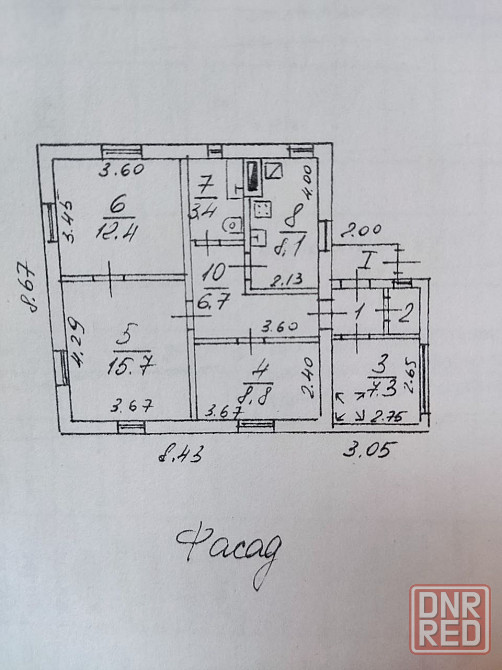 3.60
3.45
6
12.4
7
3.4
8
8,1
4.00
2.00
I
10
6.7
2.13
3.60
1
2
8.67
4.29
5
15.7
3.67
4
8,8
2.40
3.67
3
7.3
2.65
2.75
8.43
3.05
Фасад
DNR
RED